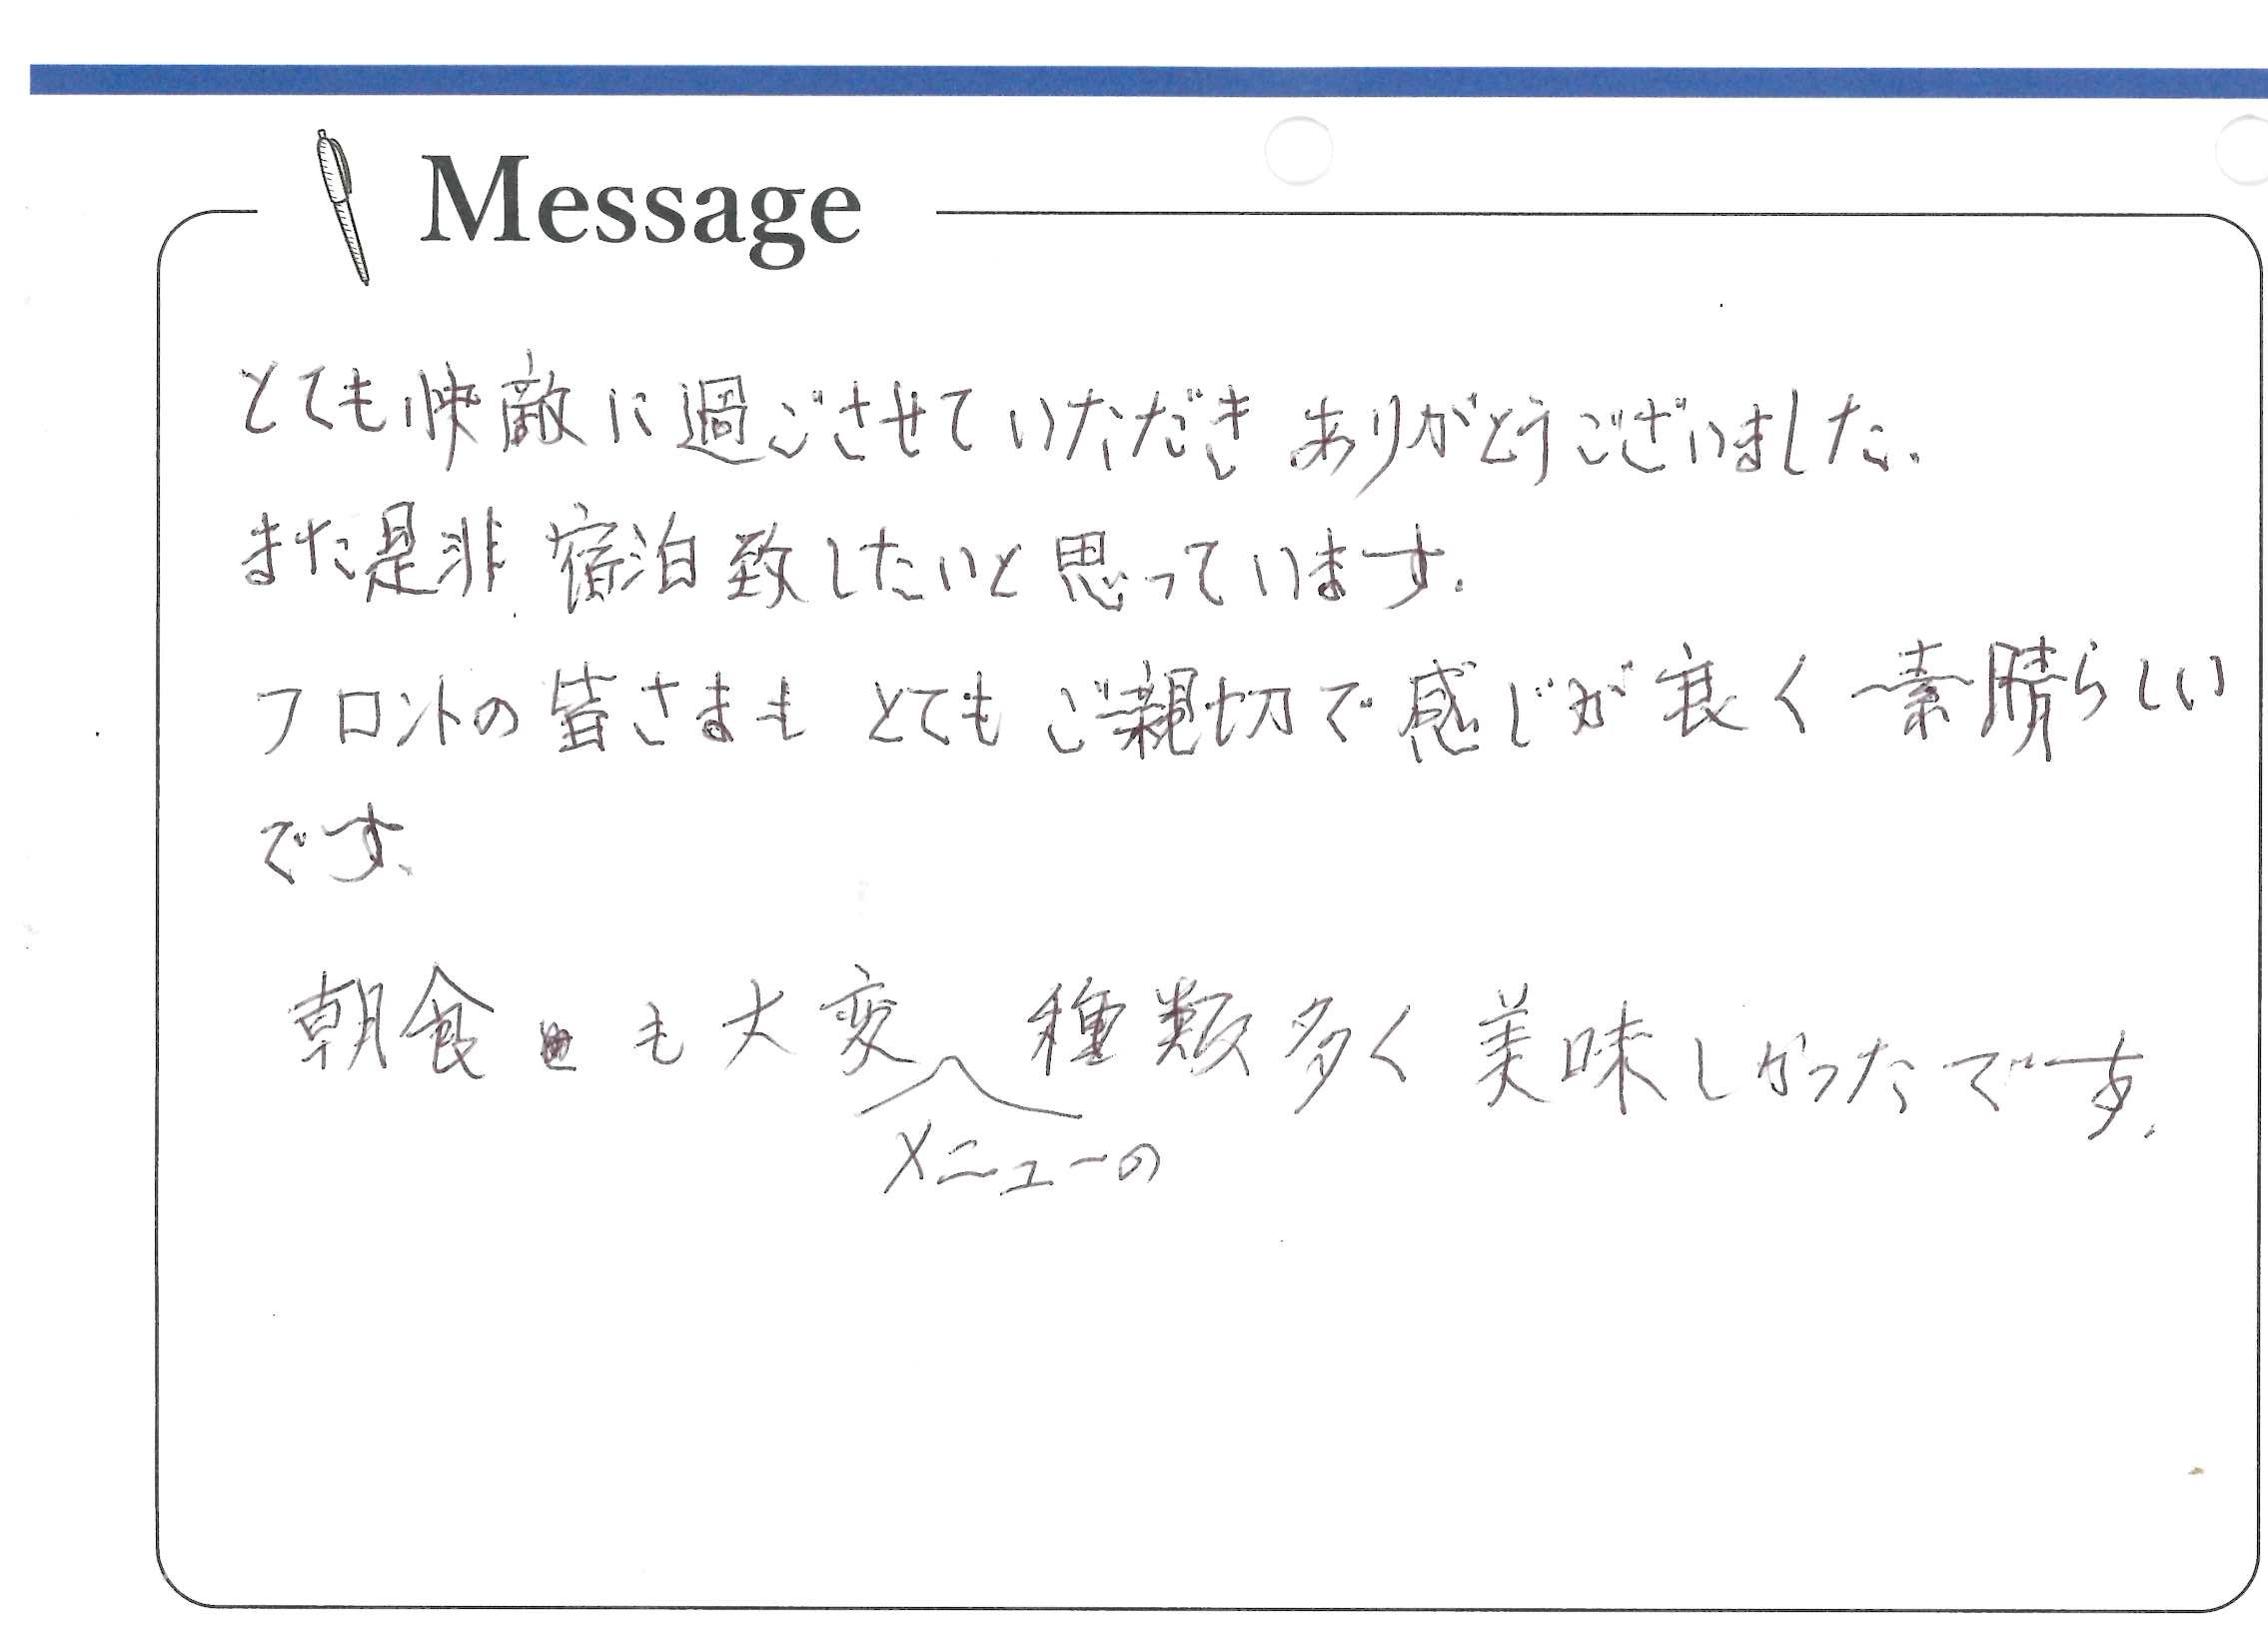 Message
とても快敵に過ごさせていただき ありがとうございました.
また是非 宿泊致したいと思っています.
フロントの皆さまも とてもご親切で感じが良く 素晴らしい
です.
朝食も大変メニューの種類多く美味しかったです.